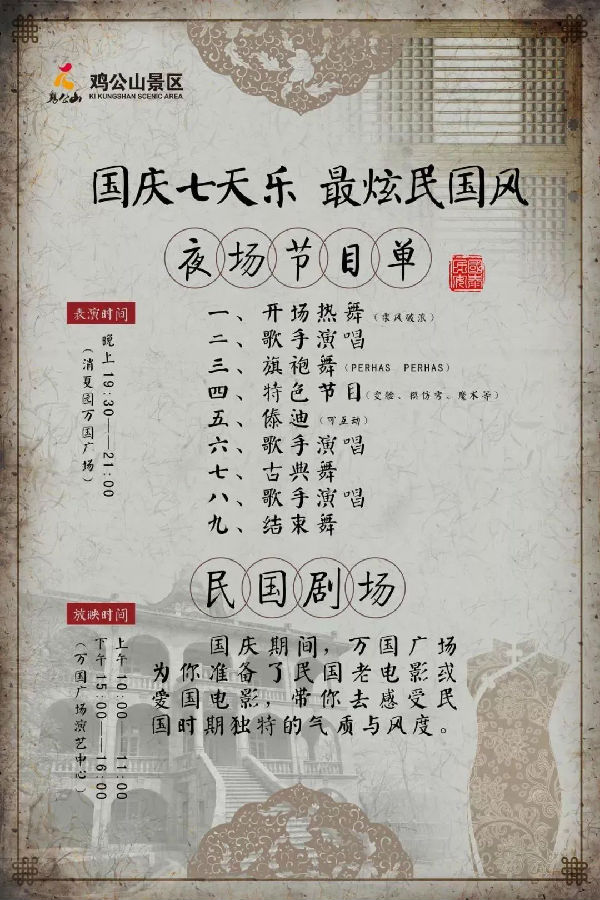 鸡公山
鸡公山景区
KI KUNGSHAN SCENIC AREA
国庆七天乐 最炫民国风
夜场节目单
表演时间
晚上 19:30——21:00
（消夏园万国广场）
一、开场热舞（乘风破浪）
二、歌手演唱
三、旗袍舞（PERHAS PERHAS）
四、特色节目（变脸、模仿秀、魔术等）
五、傣迪（可互动）
六、歌手演唱
七、古典舞
八、歌手演唱
九、结束舞
民国剧场
放映时间
上午 10:00——11:00
下午 15:00——16:00
（万国广场演艺中心）
国庆期间，万国广场
为你准备了民国老电影或
爱国电影，带你去感受民
国时期独特的气质与风度。